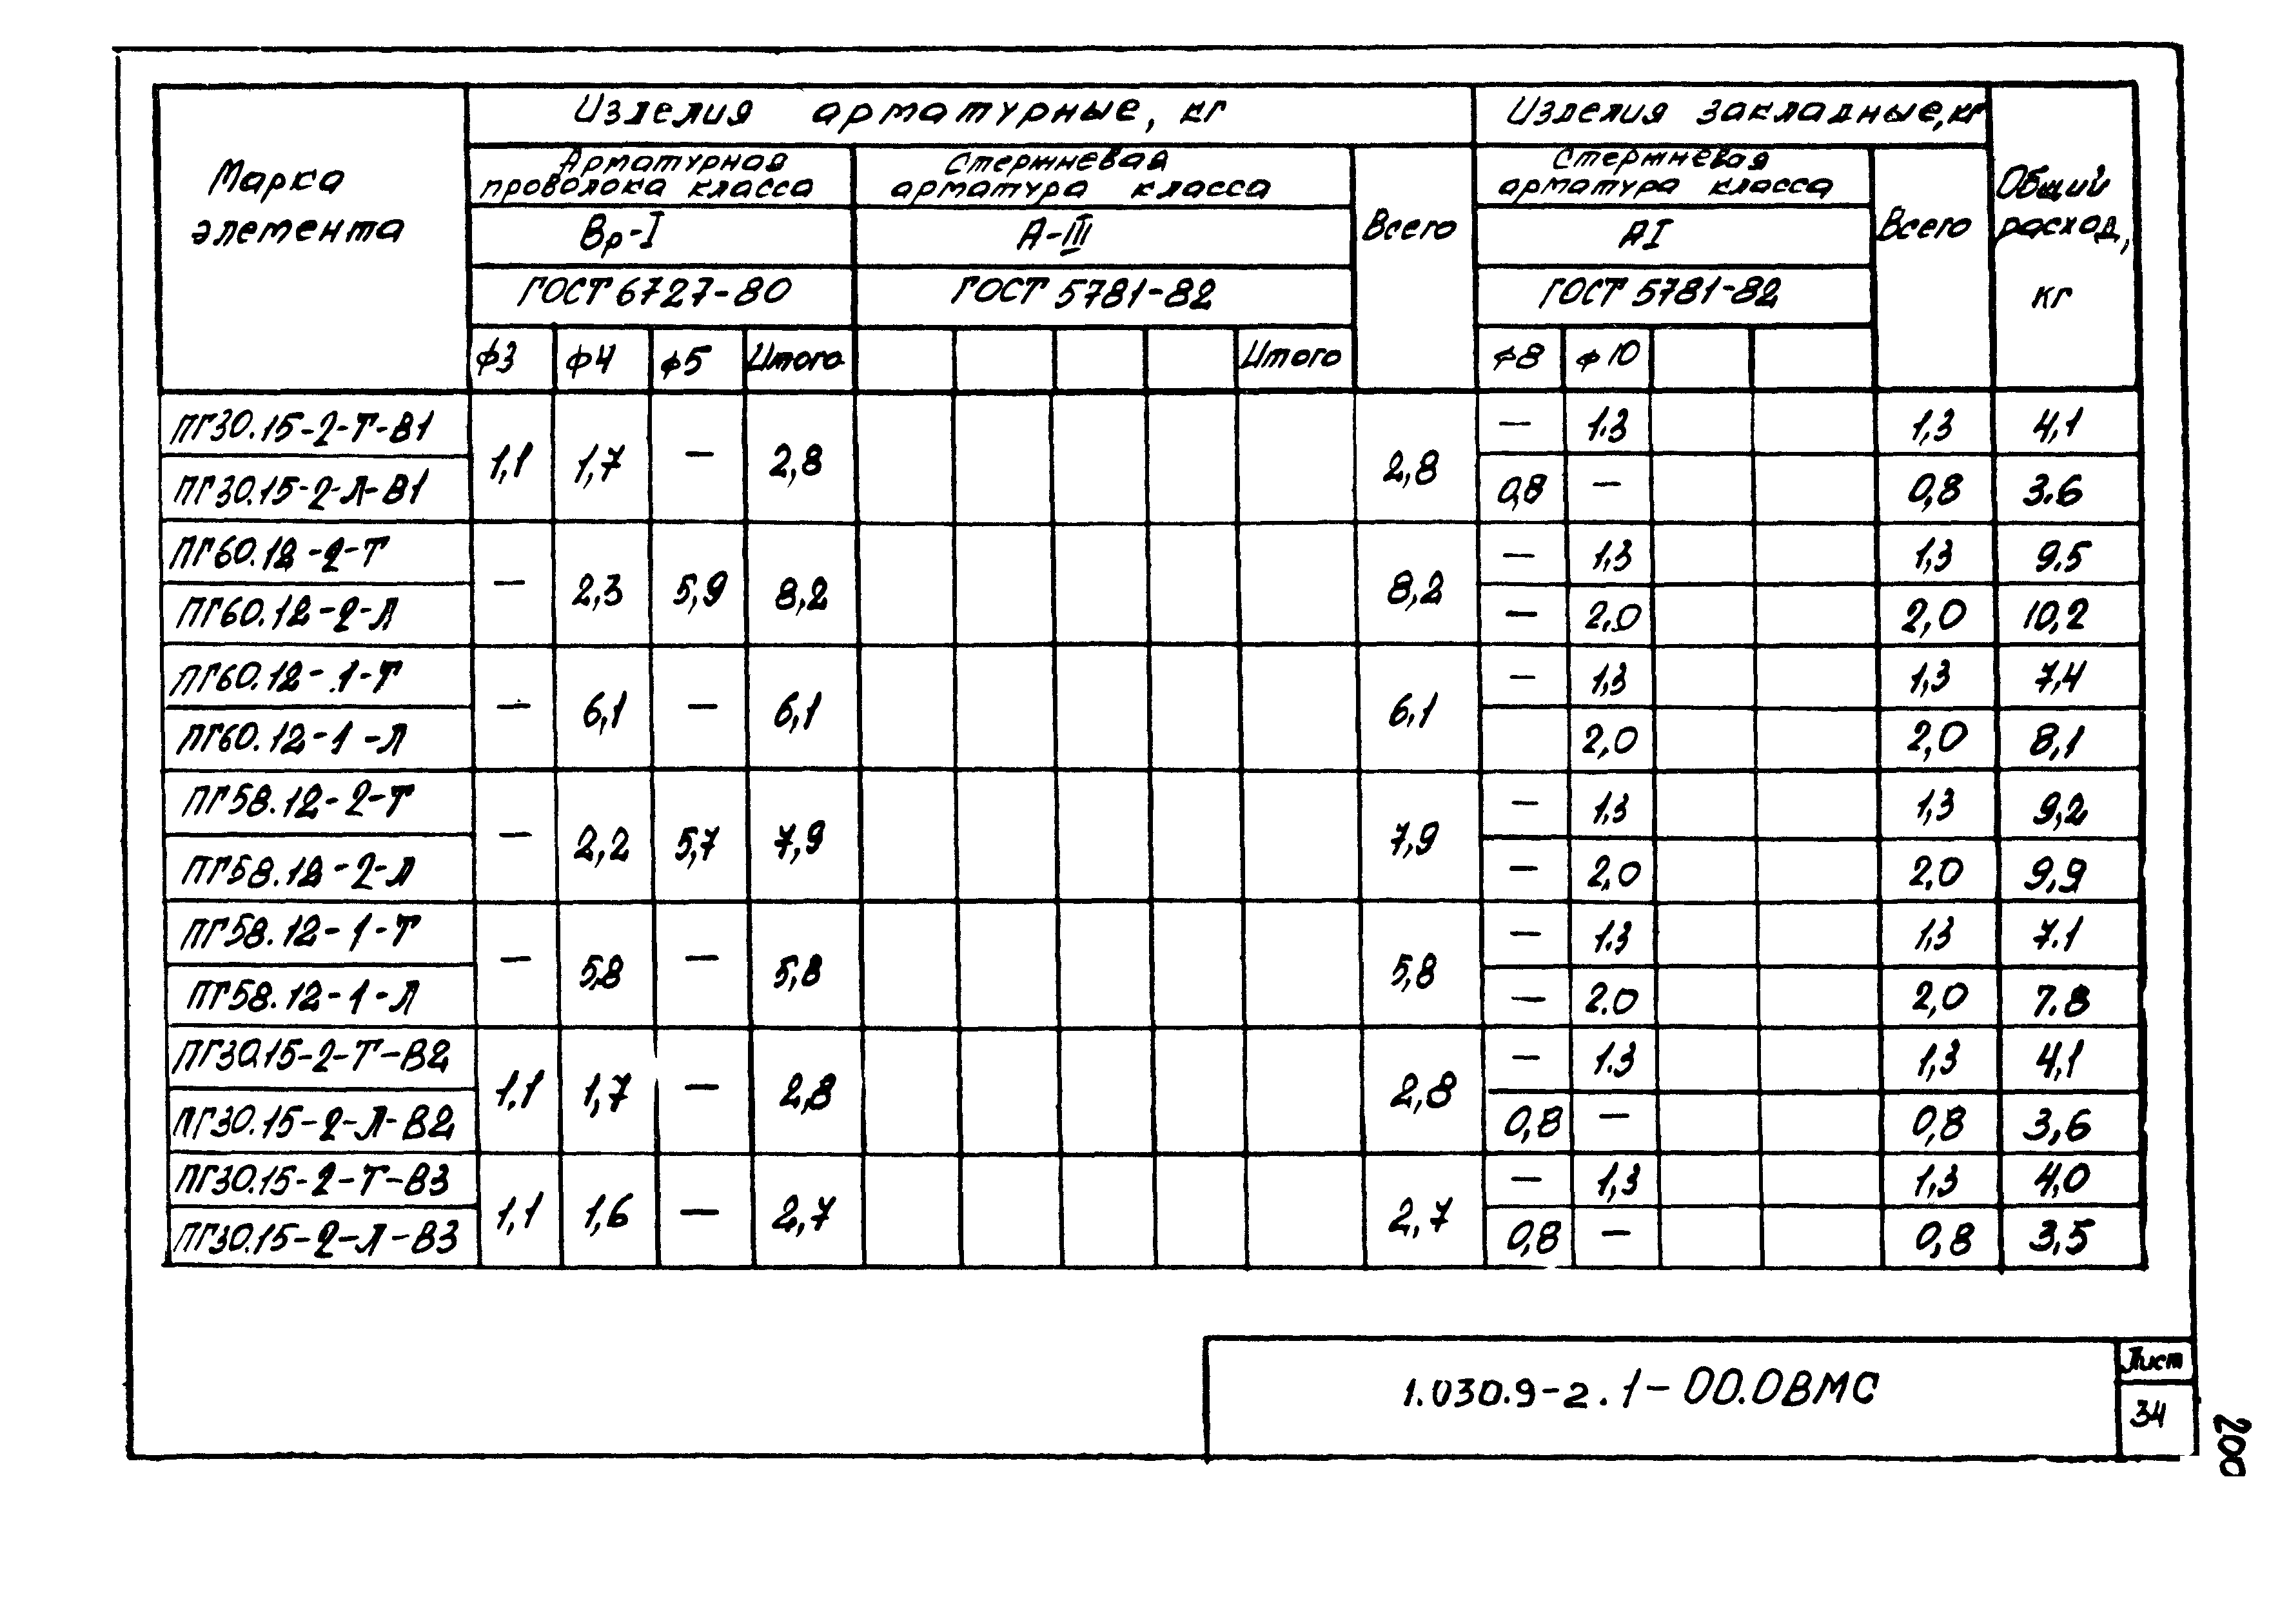 Марка элемента
Изделия арматурные, кг
Изделия закладные, кг
Общий расход, кг
Арматурная проволока класса
Стержневая арматура класса
Всего
Стержневая арматура класса
Всего
Вр-I
А-III
АI
ГОСТ 6727-80
ГОСТ 5781-82
ГОСТ 5781-82
ф3 ф4 ф5 Итого Итого ф8 ф10
ПГ30.15-2-Т-В1 1,1 1,7 — 2,8 2,8 — 1.3 1,3 4,1
ПГ30.15-2-Л-В1 0,8 — 0,8 3.6
ПГ60.12-2-Т — 2,3 5,9 8,2 8,2 — 1,3 1,3 9.5
ПГ60.12-2-Л — 2,0 2,0 10,2
ПГ60.12-1-Т — 6,1 — 6,1 6,1 — 1,3 1,3 7,4
ПГ60.12-1-Л 2,0 2,0 8,1
ПГ58.12-2-Т — 2,2 5,7 7,9 7,9 — 1,3 1,3 9,2
ПГ58.12-2-Л — 2,0 2,0 9,9
ПГ58.12-1-Т — 5,8 — 5,8 5,8 — 1.3 1,3 7.1
ПГ58.12-1-Л — 2.0 2,0 7.8
ПГ30.15-2-Т-В2 1.1 1,7 — 2,8 2,8 — 1.3 1,3 4,1
ПГ30.15-2-Л-В2 0,8 — 0,8 3,6
ПГ30.15-2-Т-В3 1,1 1,6 — 2,7 2,7 — 1,3 1,3 4,0
ПГ30.15-2-Л-В3 0,8 — 0,8 3,5
1.030.9-2.1-00.0ВМС
Лист
34
200